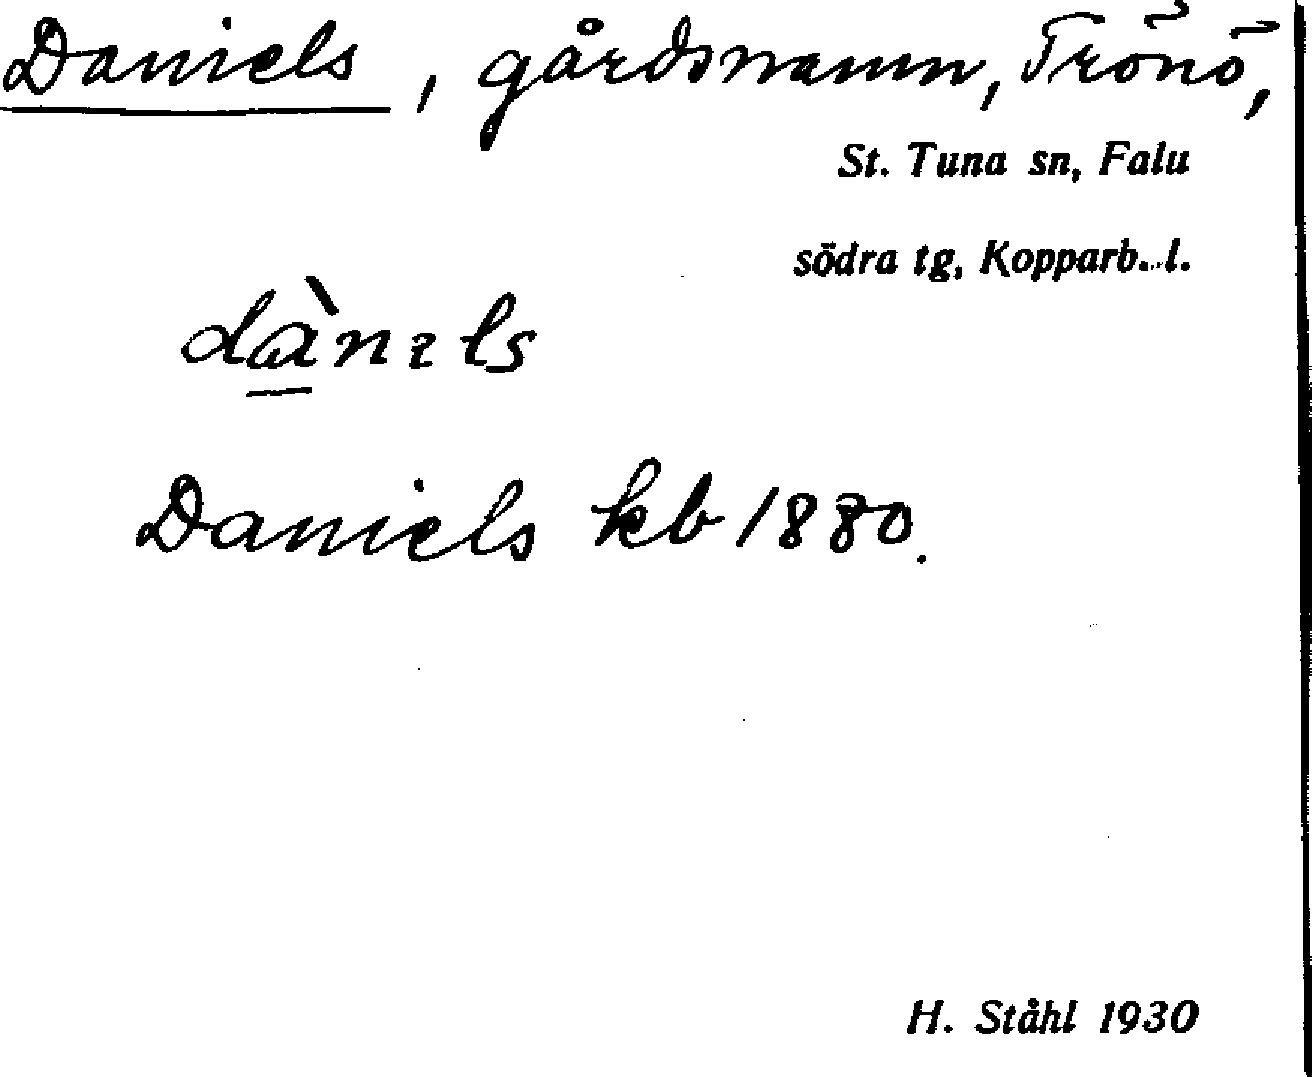 Daniels, gårdsnamn, Trönö,
St. Tuna sn, Falu
södra tg, Kopparb. l.
dà̱nɩls
Daniels kb 1880.
H. Ståhl 1930